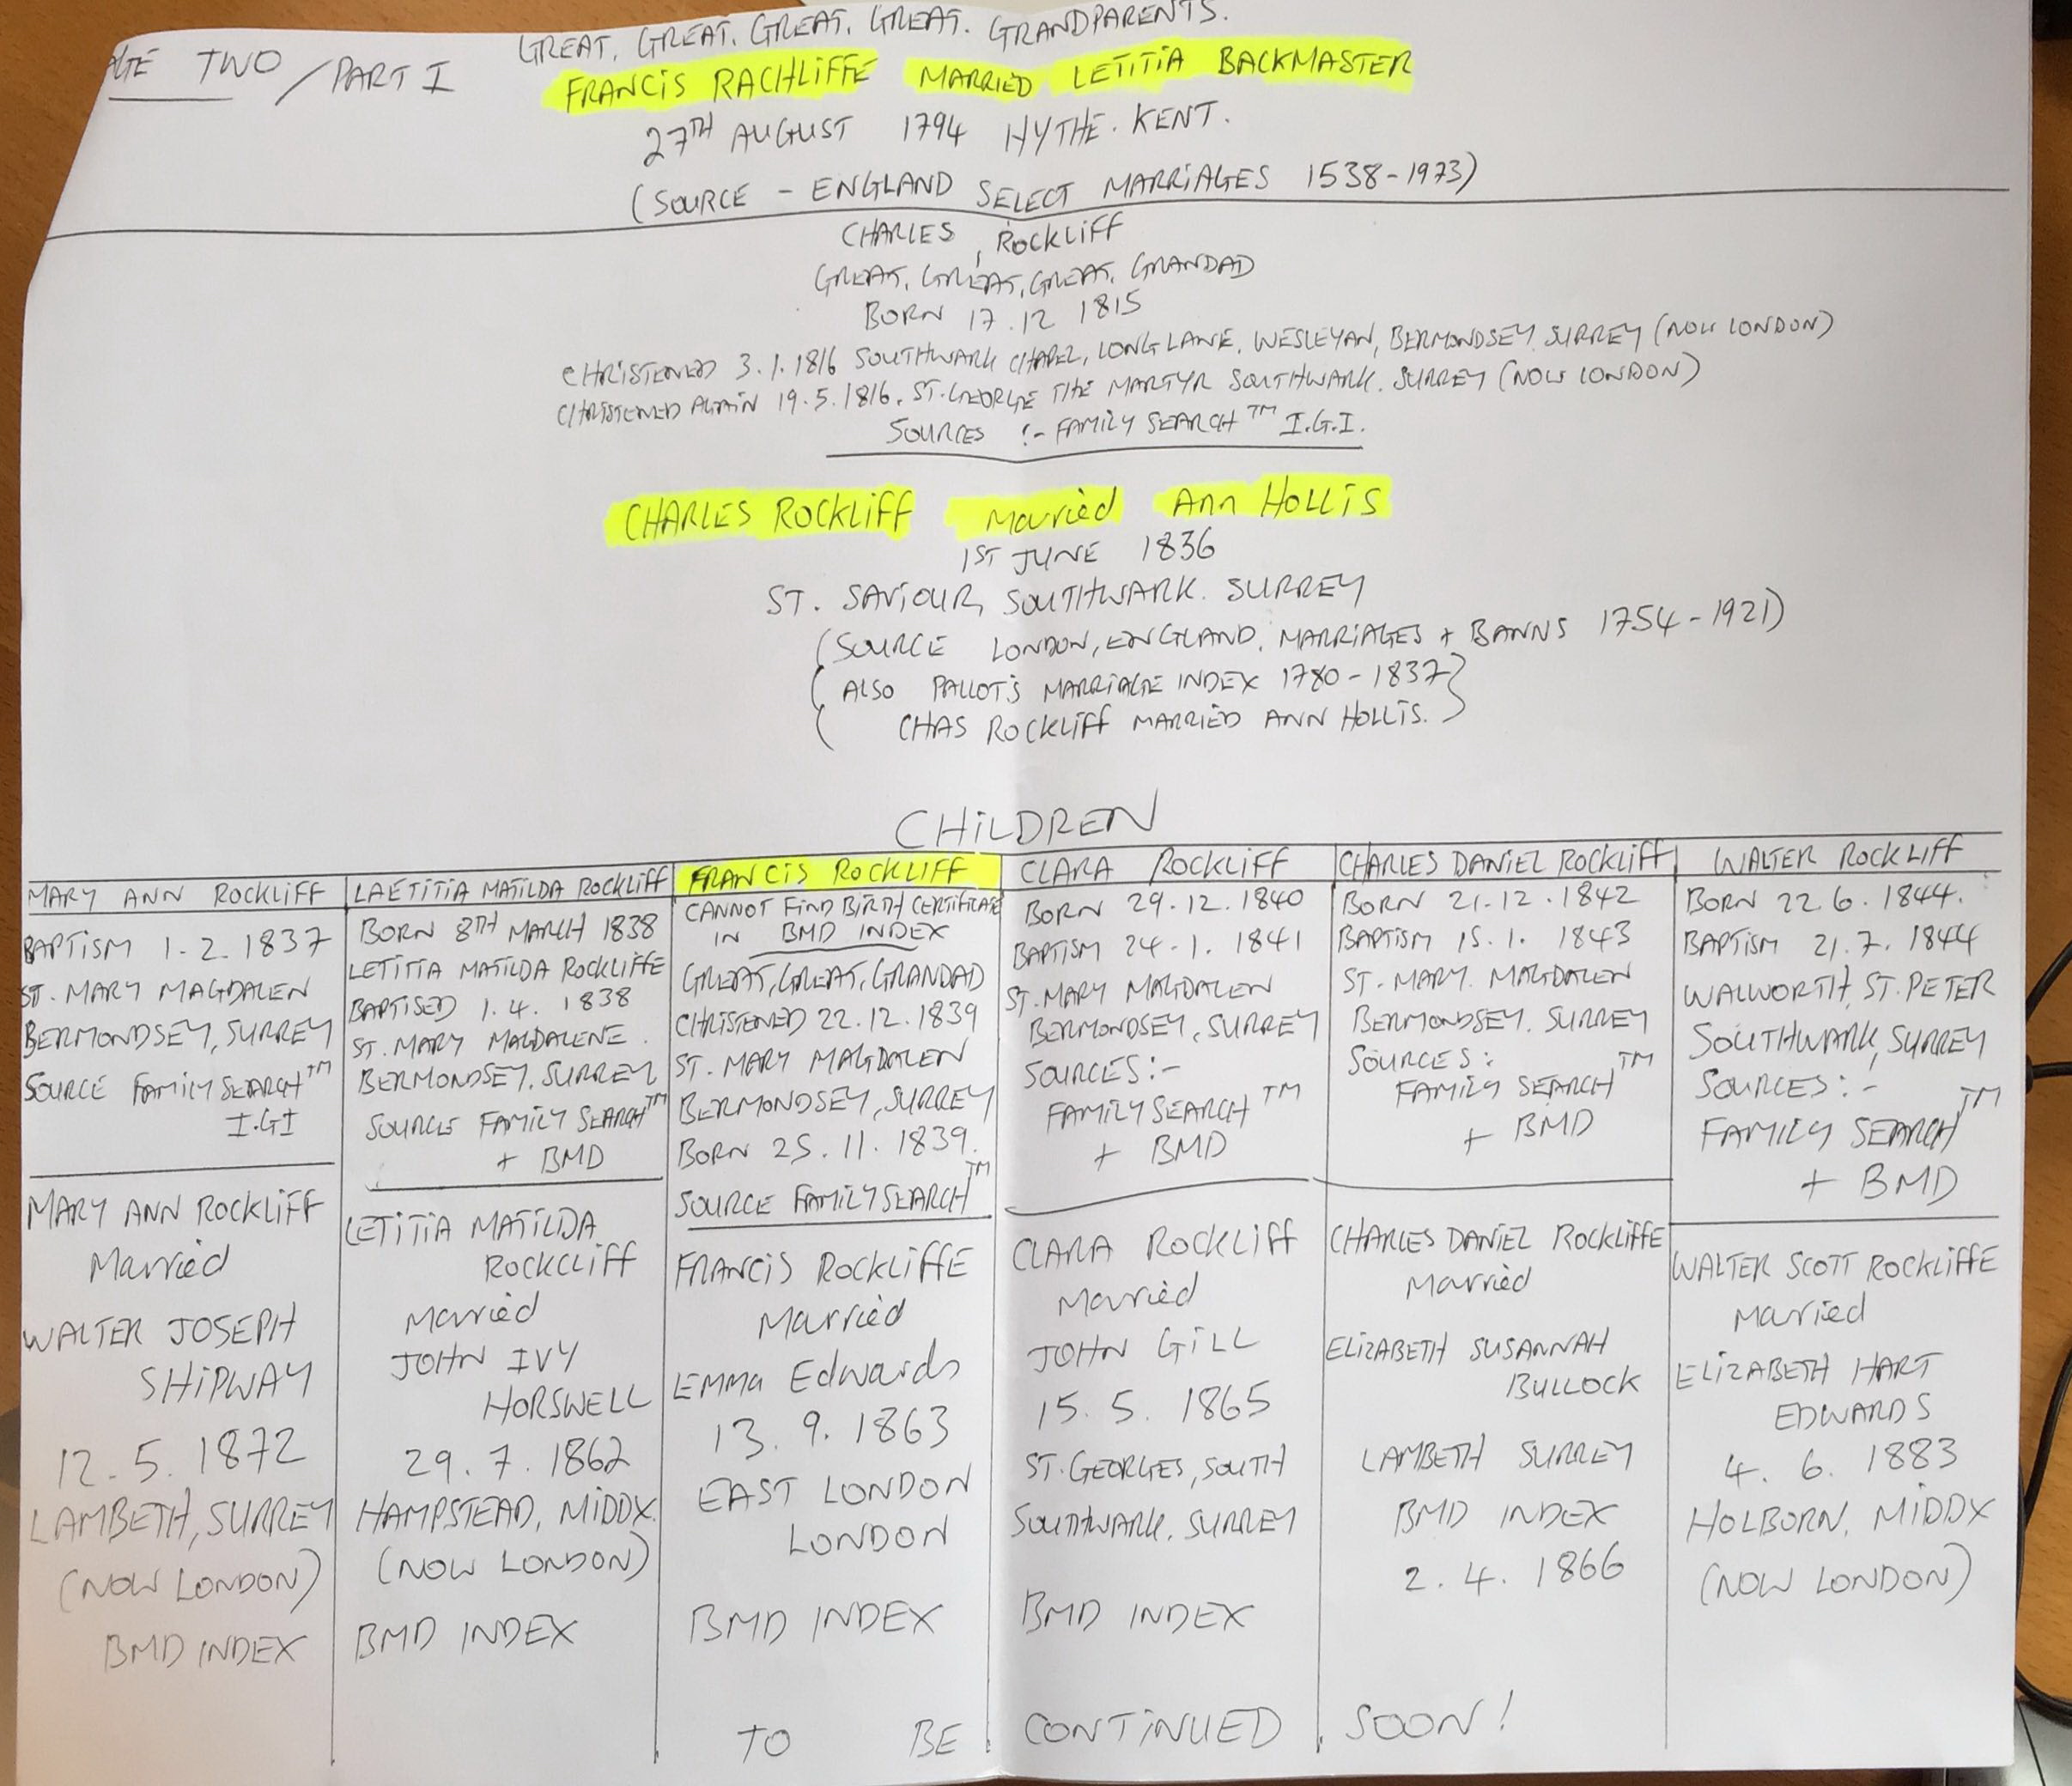 AGE TWO / PART I
GREAT. GREAT. GREAT. GREAT. GRANDPARENTS.
FRANCIS RACHLIFFE MARRIED LETITIA BACKMASTER
27TH AUGUST 1794 HYTHE. KENT.
(SOURCE - ENGLAND SELECT MARRIAGES 1538-1973)
CHARLES ROCKLIFF
GREAT, GREAT, GREAT, GRANDAD
BORN 17.12 1815
CHRISTENED 3.1.1816 SOUTHWARK CHAPEL, LONG LANE, WESLEYAN, BERMONDSEY SURREY (NOW LONDON)
CHRISTENED AGAIN 19.5.1816. ST. GEORGE THE MARTYR SOUTHWARK. SURREY (NOW LONDON)
SOURCES :- FAMILY SEARCH TM I.G.I.
CHARLES ROCKLIFF Married Ann HOLLIS
1ST JUNE 1836
ST. SAVIOUR, SOUTHWARK. SURREY
(SOURCE LONDON, ENGLAND. MARRIAGES + BANNS 1754-1921)
(ALSO PALLOT'S MARRIAGE INDEX 1780-1837)
(CHAS ROCKLIFF MARRIED ANN HOLLIS.)
CHILDREN
MARY ANN ROCKLIFF
BAPTISM 1.2.1837
ST. MARY MAGDALEN
BERMONDSEY, SURREY
SOURCE FAMILY SEARCH TM
I.G.I
MARY ANN ROCKLIFF
Married
WALTER JOSEPH
SHIPWAY
12.5.1872
LAMBETH, SURREY
(NOW LONDON)
BMD INDEX
LAETITIA MATILDA ROCKLIFF
BORN 8TH MARCH 1838
LETITIA MATILDA ROCKLIFFE
BAPTISED 1.4.1838
ST. MARY MAGDALENE.
BERMONDSEY. SURREY
SOURCE FAMILY SEARCH TM
+ BMD
LETITIA MATILDA
ROCKCLIFF
Married
JOHN IVY
HORSWELL
29.7.1862
HAMPSTEAD, MIDDX.
(NOW LONDON)
BMD INDEX
FRANCIS ROCKLIFF
CANNOT FIND BIRTH CERTIFICATE
IN BMD INDEX
GREAT, GREAT, GRANDAD
CHRISTENED 22.12.1839
ST. MARY MAGDALEN
BERMONDSEY, SURREY
BORN 25.11.1839.
SOURCE FAMILY SEARCH TM
FRANCIS ROCKLIFFE
Married
EMMa Edwards
13.9.1863
EAST LONDON
LONDON
BMD INDEX
CLARA ROCKLIFF
BORN 29.12.1840
BAPTISM 24-1.1841
ST. MARY MAGDALEN
BERMONDSEY, SURREY
SOURCES:-
FAMILY SEARCH TM
+ BMD
CLARA ROCKLIFF
Married
JOHN GILL
15.5.1865
ST. GEORGES, SOUTH
SOUTHWARK. SURREY
BMD INDEX
CHARLES DANIEL ROCKLIFF
BORN 21.12.1842
BAPTISM 15.1.1843
ST. MARY. MAGDALEN
BERMONDSEY. SURREY
SOURCES:
FAMILY SEARCH TM
+ BMD
CHARLES DANIEL ROCKLIFFE
Married
ELIZABETH SUSANNAH
BULLOCK
LAMBETH SURREY
BMD INDEX
2.4.1866
WALTER ROCKLIFF
BORN 22.6.1844.
BAPTISM 21.7.1844
WALWORTH, ST. PETER
SOUTHWARK, SURREY
SOURCES:-
FAMILY SEARCH TM
+ BMD
WALTER SCOTT ROCKLIFFE
Married
ELIZABETH HART
EDWARDS
4.6.1883
HOLBORN. MIDDX
(NOW LONDON)
TO BE CONTINUED SOON!